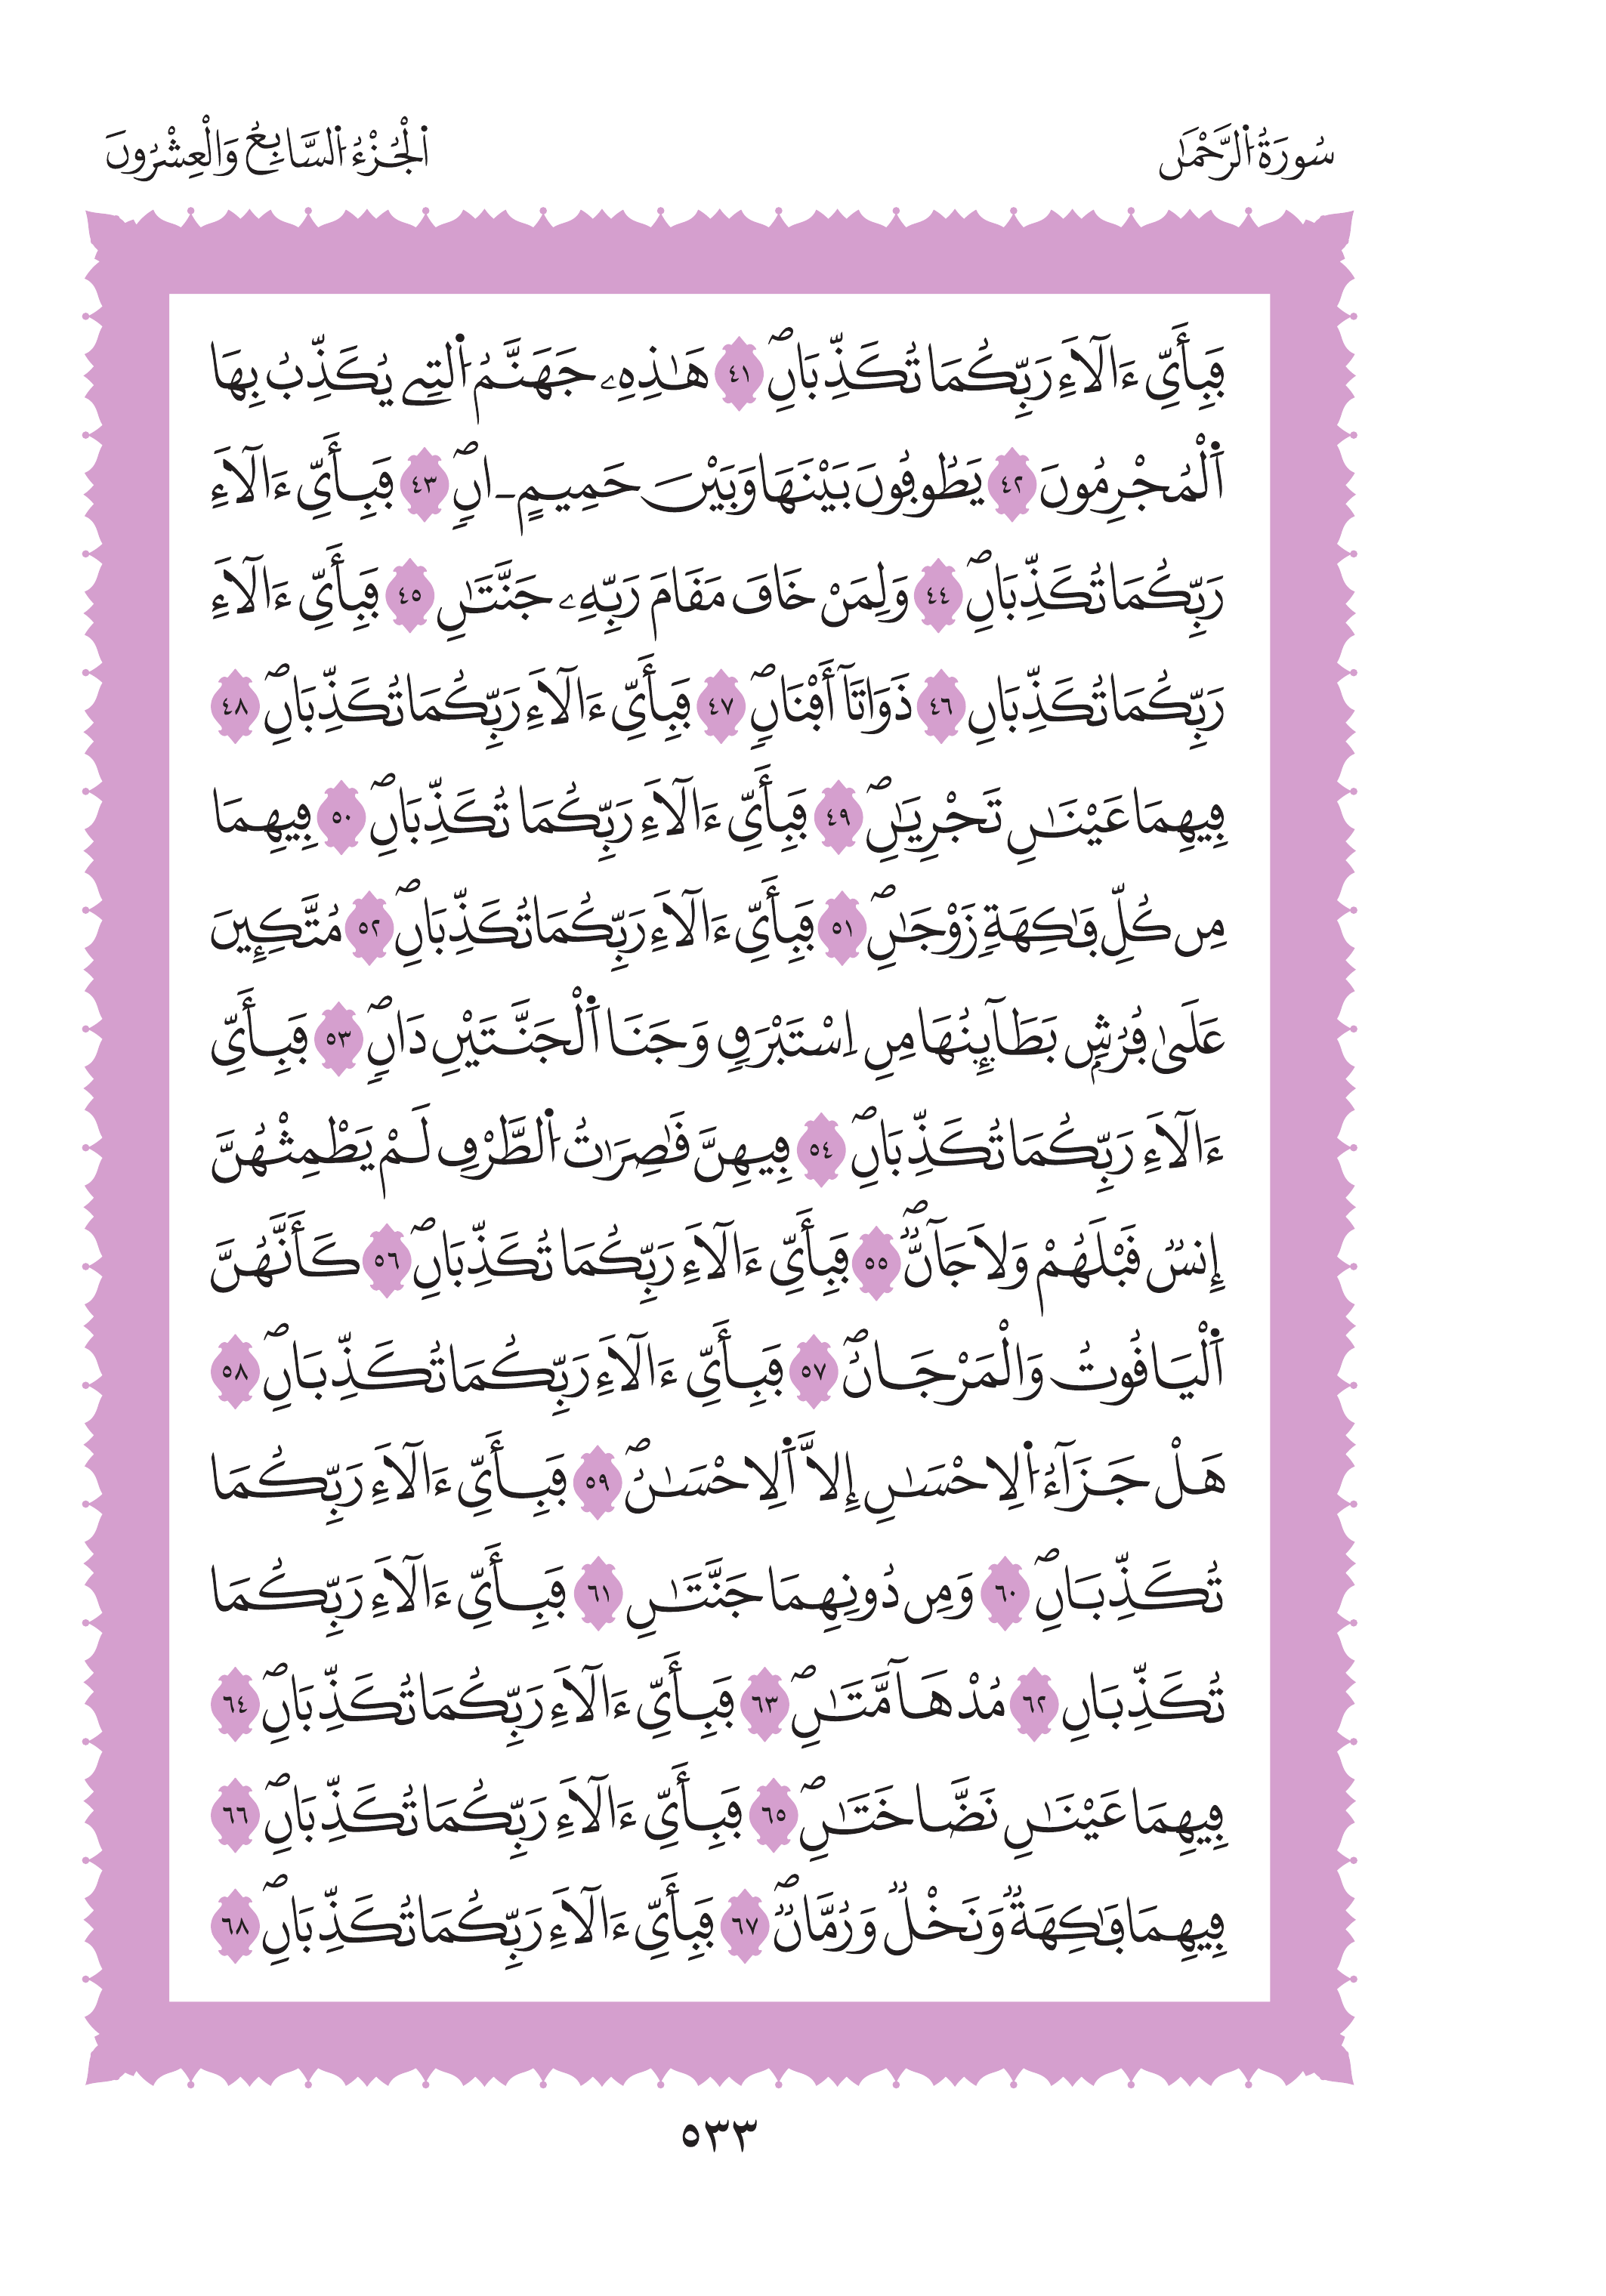 سُورَةُ الرَّحْمَٰنِ
الْجُزْءُ السَّابِعُ وَالْعِشْرُونَ
فَبِأَيِّ ءَالَآءِ رَبِّكُمَا تُكَذِّبَانِۖ ٤١ هَٰذِهِۦ جَهَنَّمُ اُ۬لتِے يُكَذِّبُ بِهَا
اَ۬لْمُجْرِمُونَ ٤٢ يَطُوفُونَ بَيْنَهَا وَبَيْنَ حَمِيمٍ ـ انٖۖ ٤٣ فَبِأَيِّ ءَالَآءِ
رَبِّكُمَا تُكَذِّبَانِۖ ٤٤ وَلِمَنْ خَافَ مَقَامَ رَبِّهِۦ جَنَّتَٰنِ ٤٥ فَبِأَيِّ ءَالَآءِ
رَبِّكُمَا تُكَذِّبَانِ ٤٦ ذَوَاتَآ أَفْنَانٖۖ ٤٧ فَبِأَيِّ ءَالَآءِ رَبِّكُمَا تُكَذِّبَانِۖ ٤٨
فِيهِمَا عَيْنَٰنِ تَجْرِيَٰنِۖ ٤٩ فَبِأَيِّ ءَالَآءِ رَبِّكُمَا تُكَذِّبَانِۖ ٥٠ فِيهِمَا
مِن كُلِّ فَٰكِهَةٖ زَوْجَٰنِۖ ٥١ فَبِأَيِّ ءَالَآءِ رَبِّكُمَا تُكَذِّبَانِۖ ٥٢ مُتَّكِـِٕينَ
عَلَىٰ فُرُشِۢ بَطَآئِنُهَا مِنِ اِسْتَبْرَقٖ وَجَنَا اَ۬لْجَنَّتَيْنِ دَانٖۖ ٥٣ فَبِأَيِّ
ءَالَآءِ رَبِّكُمَا تُكَذِّبَانِۖ ٥٤ فِيهِنَّ قَٰصِرَٰتُ اُ۬لطَّرْفِ لَمْ يَطْمِثْهُنَّ
إِنسٞ قَبْلَهُمْ وَلَا جَآنّٞۖ ٥٥ فَبِأَيِّ ءَالَآءِ رَبِّكُمَا تُكَذِّبَانِۖ ٥٦ كَأَنَّهُنَّ
اَ۬لْيَاقُوتُ وَالْمَرْجَانُۖ ٥٧ فَبِأَيِّ ءَالَآءِ رَبِّكُمَا تُكَذِّبَانِۖ ٥٨
هَلْ جَزَآءُ اُ۬لِاحْسَٰنِ إِلَّا اَ۬لِاحْسَٰنُۖ ٥٩ فَبِأَيِّ ءَالَآءِ رَبِّكُمَا
تُكَذِّبَانِۖ ٦٠ وَمِن دُونِهِمَا جَنَّتَٰنِ ٦١ فَبِأَيِّ ءَالَآءِ رَبِّكُمَا
تُكَذِّبَانِ ٦٢ مُدْهَآمَّتَٰنِۖ ٦٣ فَبِأَيِّ ءَالَآءِ رَبِّكُمَا تُكَذِّبَانِۖ ٦٤
فِيهِمَا عَيْنَٰنِ نَضَّاخَتَٰنِۖ ٦٥ فَبِأَيِّ ءَالَآءِ رَبِّكُمَا تُكَذِّبَانِۖ ٦٦
فِيهِمَا فَٰكِهَةٞ وَنَخْلٞ وَرُمَّانٞۖ ٦٧ فَبِأَيِّ ءَالَآءِ رَبِّكُمَا تُكَذِّبَانِۖ ٦٨
٥٣٣